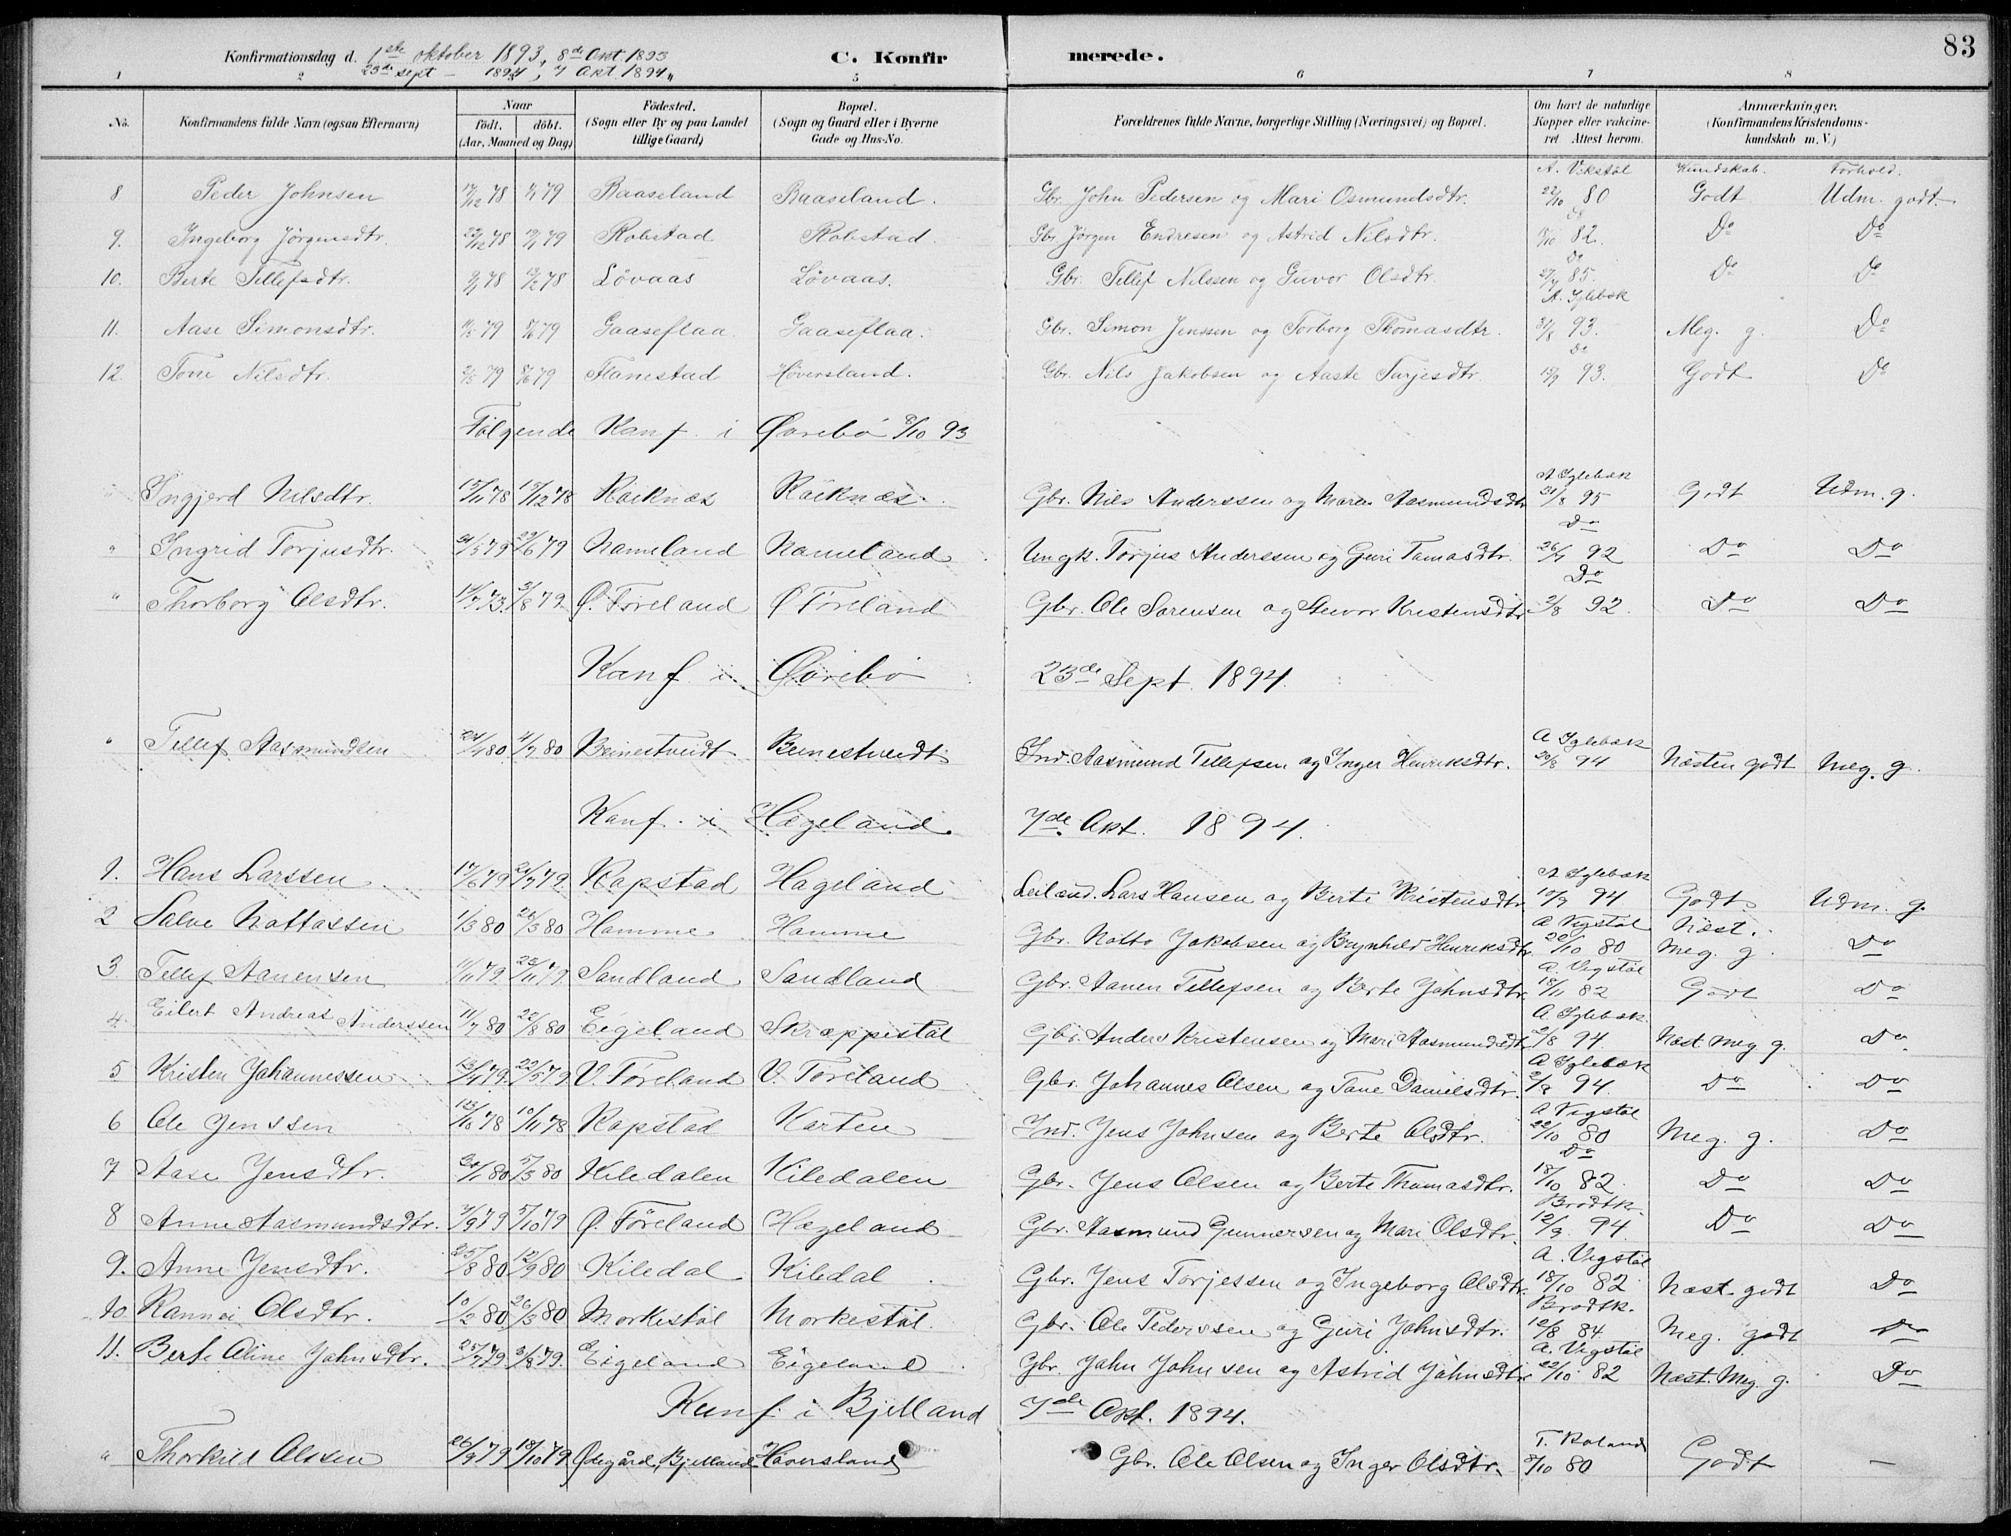 83
Konfirmationsdag d. 1ste oktober 1893, 8de Okt. 1893
23de sept – 1894, 7 Okt 1894
C. Konfirmerede.
1 2 5 6 7 8
No. Konfirmandens fulde Navn (ogsaa Efternavn) Naar født. døbt. (Aar, Maaned og Dag) Födested. (Sogn eller By og paa Landet tillige Gaard) Bopæl. (Sogn og Gaard eller i Byerne Gade og Hus-No. Forældrenes fulde Navne, borgerlige Stilling (Næringsvei) og Bopæl. Om havt de naturlige Kopper eller vakcineret Attest herom. Anmærkninger. (Konfirmandens Kristendomskundskab m. V.)
A. Vikstøl Kundskab. Forhold.
8 Peder Johnsen 17/12 78 1/1 79 Baaseland Baaseland. Gbr. John Pedersen og Mari Osmundsdtr. 22/10 80 Godt Udm. godt.
9. Ingeborg Jørgensdtr. 79 Robstad Robstad. Gbr Jørgen Endresen og Astrid Nilsdtr. Do 82. Do Do
10. Berte Tellefsdtr. 78 78 Løvaas Løvaas. Gbr. Tellef Nilssen og Guvor Olsdtr. Do 85. Do Do
11. Aase Simonsdtr. 79 79 Gaaseflaa. Gaaseflaa. Gbr. Simon Jenssen og Torborg Thomasdtr. A. Iglebæk 31/8 93. Meg. g. Do
12. Tone Nilsdtr. 79 79 Flanestad Høversland. Gbr. Nils Jakobsen og Aaste Turjesdtr. Do 93. Godt Do
Følgende Konf. i Øvrebø 8/10 93
" Ingjerd Nilsdtr. 78 78 Røiknes Røiknes. Gbr. Nils Anderssen og Maren Aasmundsdtr A Iglebæk 31/8 Godt Udm. g.
" Ingrid Torjusdtr. 31/5 79 29/6 79 Nomeland Nomeland Ungk. Torjus Anderssen og Guri Tomasdtr. Do 92 Do Do
" Thorborg Olsdtr. 3/8 79. Ø. Føreland Ø Føreland Gbr. Ole Sørensen og Guvor Kristensdtr Do 2/8 92. Do Do
Konf i Øvrebø 23de Sept. 1894.
" Tellef Aasmundsen 80 80 Beinestveidt Beinestveidt Ind. Aasmund Tellefsen og Inger Henriksdtr. A Iglebæk 94 Næsten godt Meg. g.
Konf. i Hægeland. 7de Okt. 1894.
1. Hans Larssen 17/6 79 79. Kopstad Hageland Leilænd. Lars Hansen og Berte Kristensdtr A Iglebæk 94 Godt. Udm. g.
2 Salve Nottossen 1/3 80 80 Homme Homme Gbr. Notto Jakobsen og Brynhild Henriksdtr A Vigstøl 22/10 80 Næst. Meg. g. Do
3. Tellef Aanensen 11/11 79. 79. Sandland Sandland Gbr. Aanen Tellefsen og Berte Johnsdtr. A. Vigstøl 18/11 82 Godt Do
4. Eilert Andreas Anderssen 11/7 80 22/8 80 Eigeland Skroppestøl Gbr. Anders Kristensen og Mari Aasmundsdtr. A Iglebæk. 2/8 94. Næst. meg g. Do
5 Kristen Johannessen 79. 79. V. Føreland V. Føreland Gbr. Johannes Olsen og Tone Danielsdtr. A Iglebæk 2/8 94. Do Do
6 Ole Jenssen 78 10/11 78 Kopstad Korten Ind. Jens Johnsen og Berte Olsdtr. A Vigstøl 22/10 80 Meg. g. Do
7 Aase Jensdtr. 80 5/3 80 Kiledalen Kiledalen Gbr. Jens Olsen og Berte Thomasdtr. Do 18/10 82. Do Do
8 Anne Aasmundsdtr. 79 5/10 79 Ø. Føreland Hægeland Gbr. Aasmund Gunnersen og Mari Olsdtr. Brodtk. 94. Do Do
9. Anne Jensdtr. 25/8 80 12/9 80 Kiledal Kiledal Gbr. Jens Torjessen og Ingeborg Olsdtr. A. Vigstøl 18/10 82 Næst. godt Do
10. Rannei Olsdtr. 10/2 80. 26/3 80 Morkestøl Morkestøl. Gbr. Ole Pederssen og Guri Johnsdtr. Brodtk. 12/8 84. Meg. godt Do
11. Berte Oline Johnsdtr. 25/7 79. 3/8 79. Eigeland Eigeland Gbr. John Johnsen og Astrid Johnsdtr. A. Vigstøl 22/10 82 Næst. Meg. g. Do
Konf. i Bjelland 7de Okt. 1894.
" Thorkild Olssen 26/9 79 18/10 79. Ødegård, Bjelland Hoversland Gbr. Ole Olsen og Inger Olsdtr. T. Roland 80 Godt —